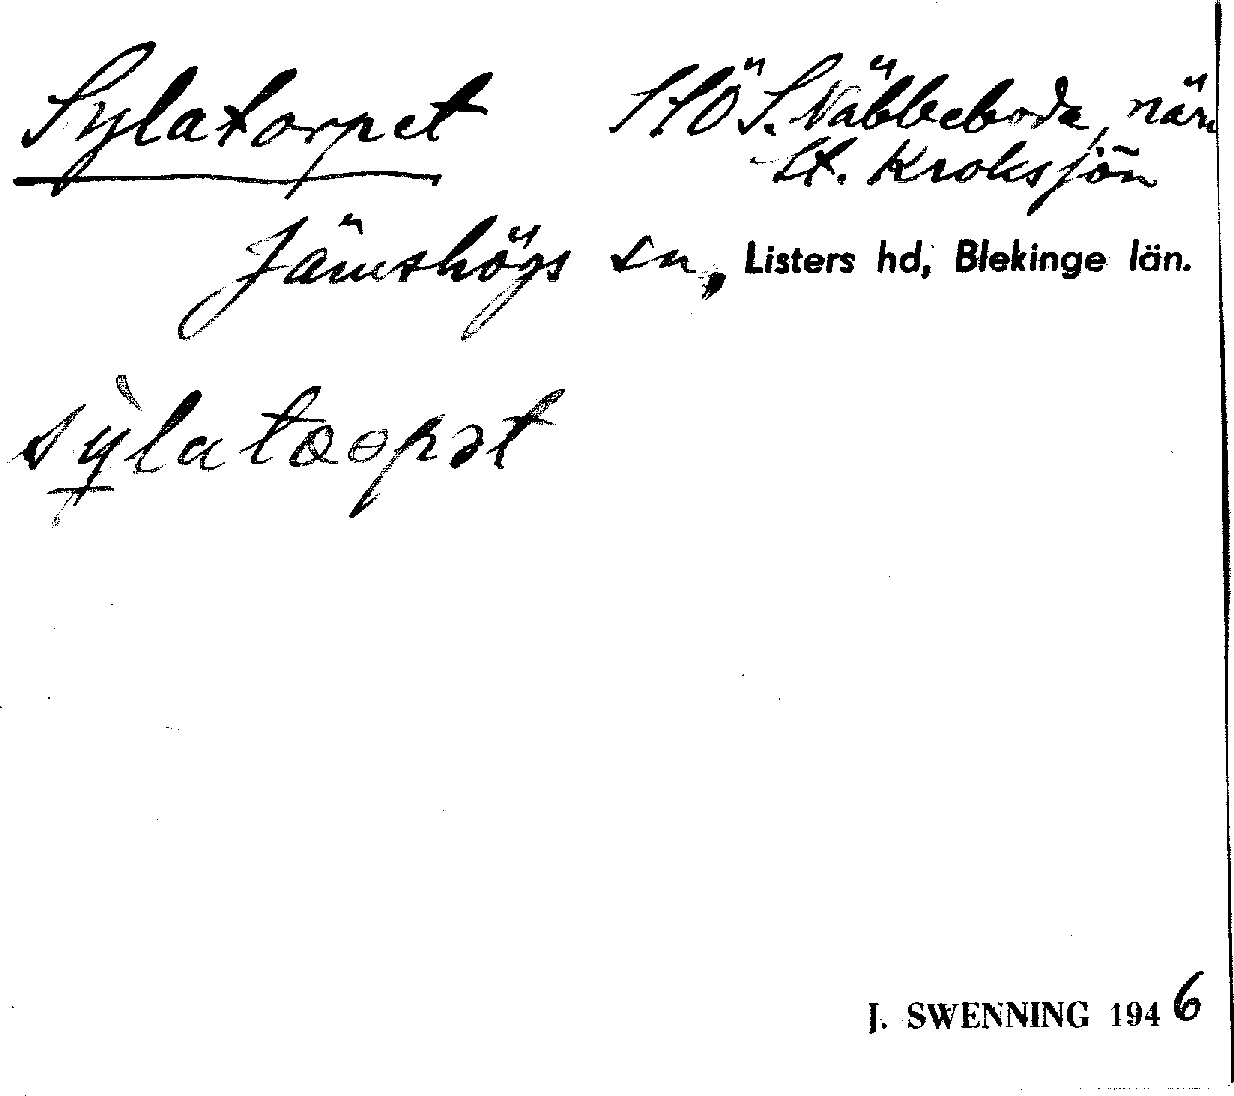 Sylatorpet SSÖ S. Näbbeboda, när
St. Kroksjön
Jämshögs sn, Listers hd, Blekinge län.
J. SWENNING 1946